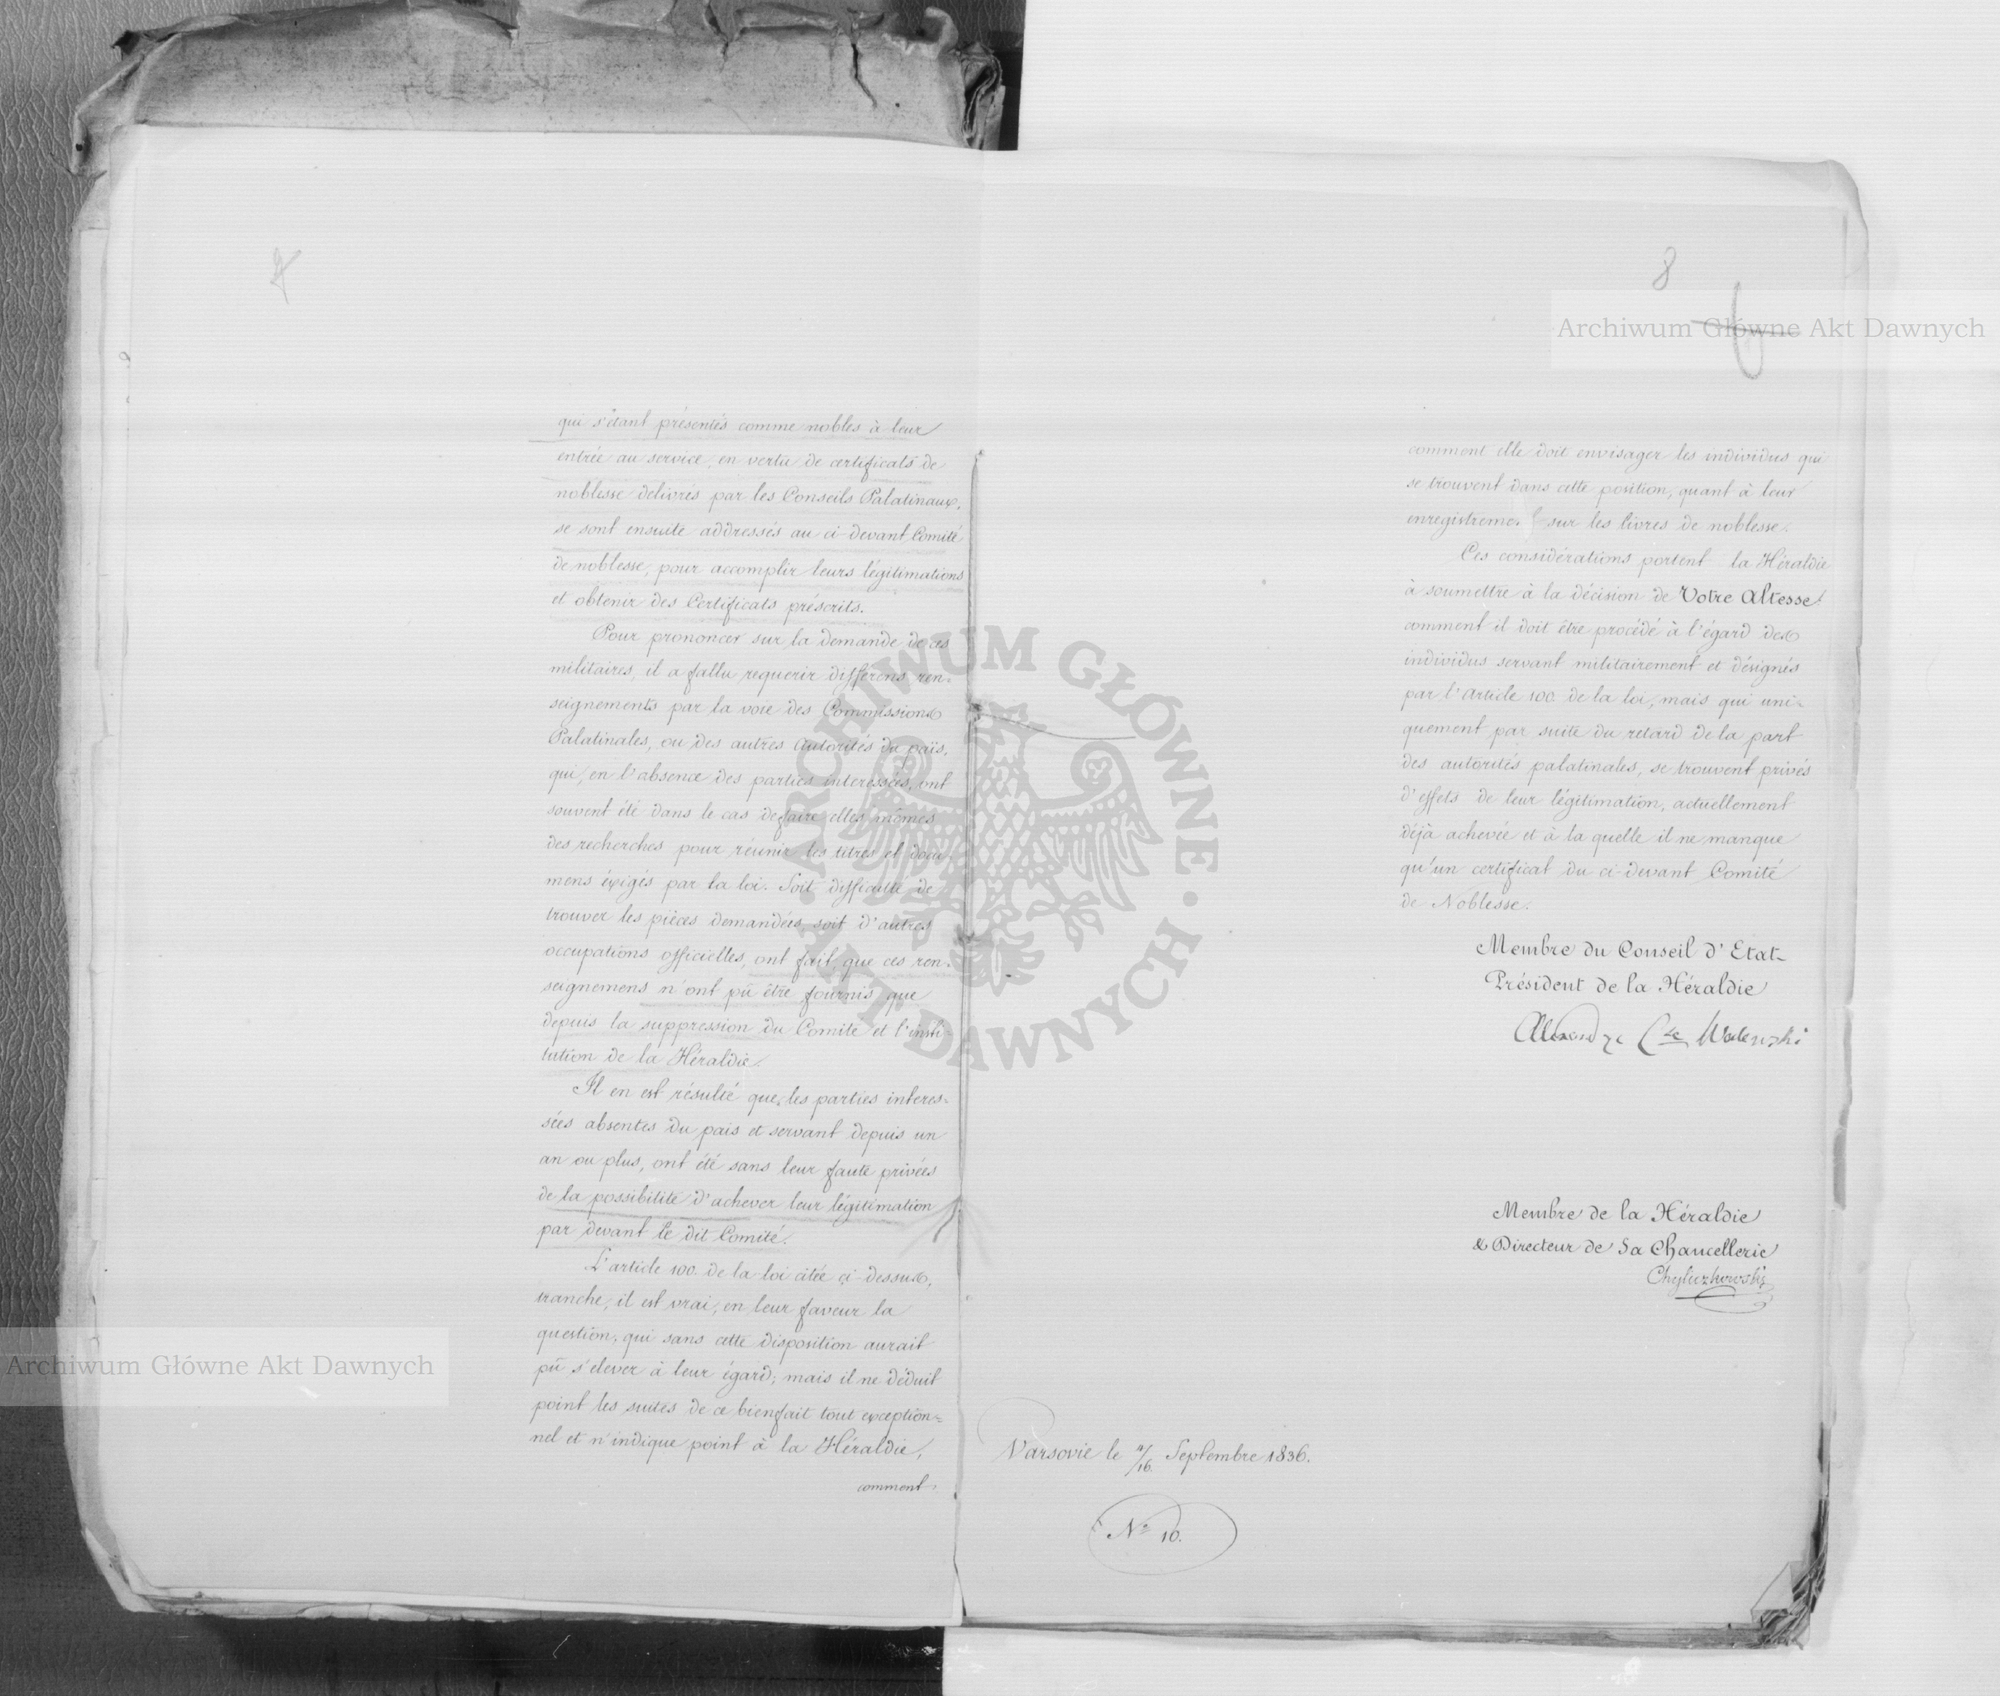 7
qui s'étant présentés comme nobles à leur
entrée au service, en vertu de certificats de
noblesse delivrés par les Conseils Palatinaux,
se sont ensuite addressés au ci-devant Comité
de noblesse, pour accomplir leurs légitimations
et obtenir des Certificats préscrits.
Pour prononcer sur la demande de ces
militaires, il a fallu requerir différens ren-
seignements par la voie des Commissions
Palatinales, ou des autres Autorités du païs,
qui, en l'absence des parties interessées, ont
souvent été dans le cas de faire elles mêmes
des recherches pour réunir les titres et docu
mens éxigés par la loi. Soit difficulté de
trouver les pièces demandées, soit d'autres
occupations officielles, ont fait que ces ren-
seignemens n'ont pû être fournis que
depuis la suppression du Comité et l'insti-
tution de la Héraldie.
Il en est résulté que les parties interes-
sées absentes du pais et servant depuis un
an ou plus, ont été sans leur faute privées
de la possibilité d'achever leur légitimation
par devant le dit Comité.
L'article 100. de la loi citée ci-dessus,
tranche, il est vrai, en leur faveur la
question, qui sans cette disposition aurait
pû s'élever à leur égard; mais il ne déduit
point les suites de ce bienfait tout exception=
nel et n'indique point à la Héraldie,
comment
8
comment elle doit envisager les individus qui
se trouvent dans cette position, quant à leur
sur les livres de noblesse.
Ces considérations portent la Héraldie
à soumettre à la décision de Votre Altesse
comment il doit être procédé à l'égard des
individus servant militairement et désignés
par l'Article 100 de la loi, mais qui uni-
quement par suite du retard de la part
des autorités palatinales, se trouvent privés
d'effets de leur légitimation, actuellement
déjà achevée et à la quelle il ne manque
qu'un certificat du ci-devant Comité
de Noblesse.
Membre du Conseil d'Etat
Président de la Héraldie
Cte Walewski
Membre de la Héraldie
& Directeur de Sa Chancellerie
Chyliczkowski
Varsovie le 4/16. Septembre 1836.
No 10.
Archiwum Główne Akt Dawnych
Archiwum Główne Akt Dawnych
ARCHIWUM GŁÓWNE · AKT DAWNYCH ·